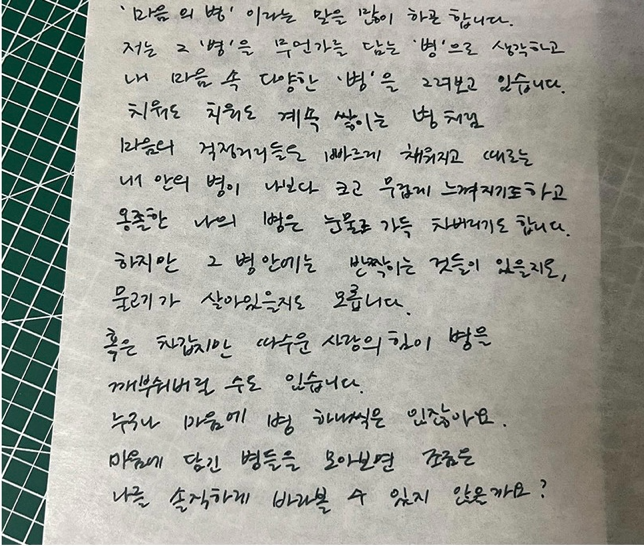 '마음의 병' 이라는 말을 많이 하곤 합니다.
저는 그 '병'을 무언가를 담는 '병'으로 생각하고
내 마음 속 다양한 '병'을 그려보고 있습니다.
치워도 치워도 계속 쌓이는 병처럼
마음의 걱정거리들은 빠르게 채워지고 때로는
내 안의 병이 나보다 크고 무겁게 느껴지기도하고
옹졸한 나의 병은 눈물로 가득 차버리기도 합니다.
하지만 그 병안에는 반짝이는 것들이 있을지도,
물고기가 살아있을지도 모릅니다.
혹은 차갑지만 따수운 사랑의 힘이 병을
깨부숴버릴 수도 있습니다.
누구나 마음에 병 하나씩은 있잖아요.
마음에 담긴 병들을 모아보면 조금은
나를 솔직하게 바라볼 수 있지 않을까요?